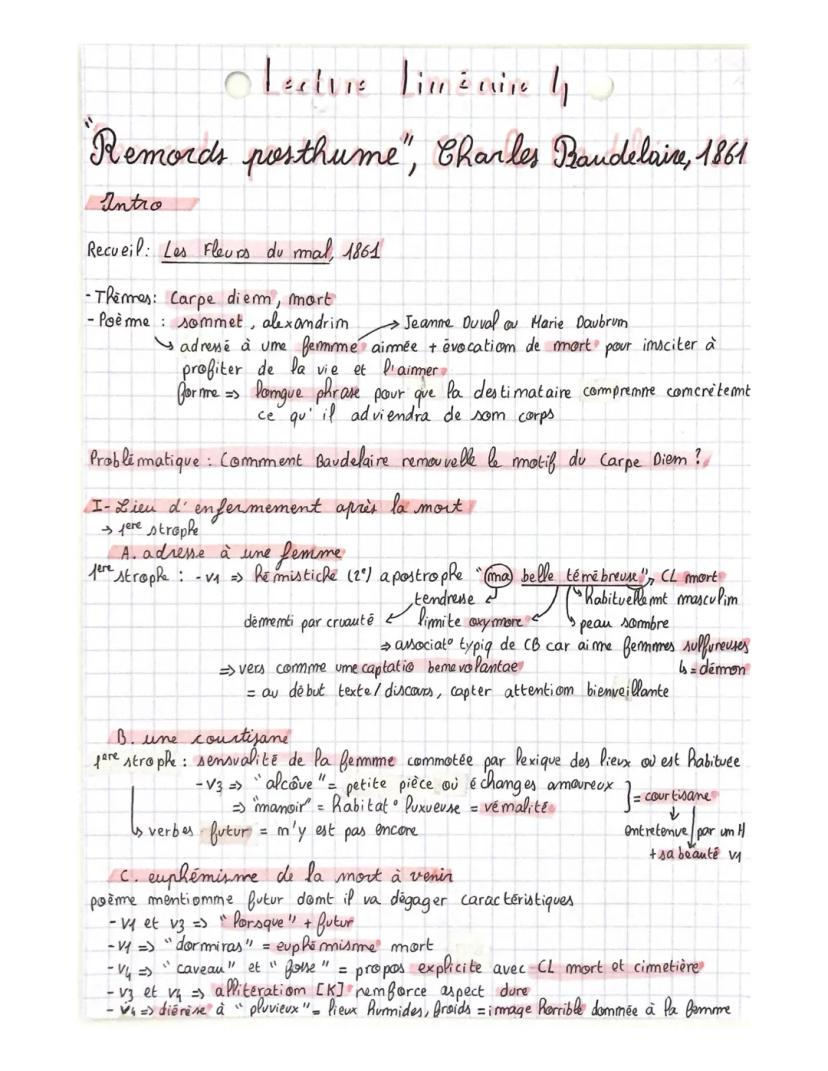 Lecture Linéaire 4
"Remords posthume", Charles Baudelaire, 1861
Intro
Recueil: Les Fleurs du mal, 1861
- Thèmes: Carpe diem, mort
- Poème : sonnet, alexandrin → Jeanne Duval ou Marie Daubrun
↳ adressé à une femme aimée + évocation de mort pour insciter à
profiter de la vie et l'aimer
forme => longue phrase pour que la destinataire comprenne concrètemt
ce qu'il adviendra de son corps
Problématique : Comment Baudelaire renouvelle le motif du Carpe Diem ?
I- Lieu d'enfermement après la mort
→ 1ere strophe
A. adresse à une femme
1ere strophe : - v1 => hémistiche (2e) apostrophe "ma belle ténébreuse", CL mort
tendresse habituellemt masculin
démenti par cruauté limite oxymore peau sombre
=> associat° typiq de CB car aime femmes sulfureuses
=> vers comme une captatio benevolantae ↳ = démon
= au début texte/discours, capter attention bienveillante
B. une courtisane
1ere strophe : sensualité de la femme connotée par lexique des lieux où est habituée
- v3 => "alcôve" = petite pièce où échanges amoureux
=> "manoir" = habitat° luxueuse = vénalité = courtisane
↳ verbes futur = n'y est pas encore entretenue par un H
+ sa beauté v1
C. euphémisme de la mort à venir
poème mentionne futur dont il va dégager caractéristiques
- v1 et v3 => "lorsque" + futur
- v1 => "dormiras" = euphémisme mort
- v4 => "caveau" et "fosse" = propos explicite avec CL mort et cimetière
- v3 et v4 => allitération [K] renforce aspect dure
- v4 => diérèse à "pluvieux" = lieux humides, froids = image horrible donnée à la femme